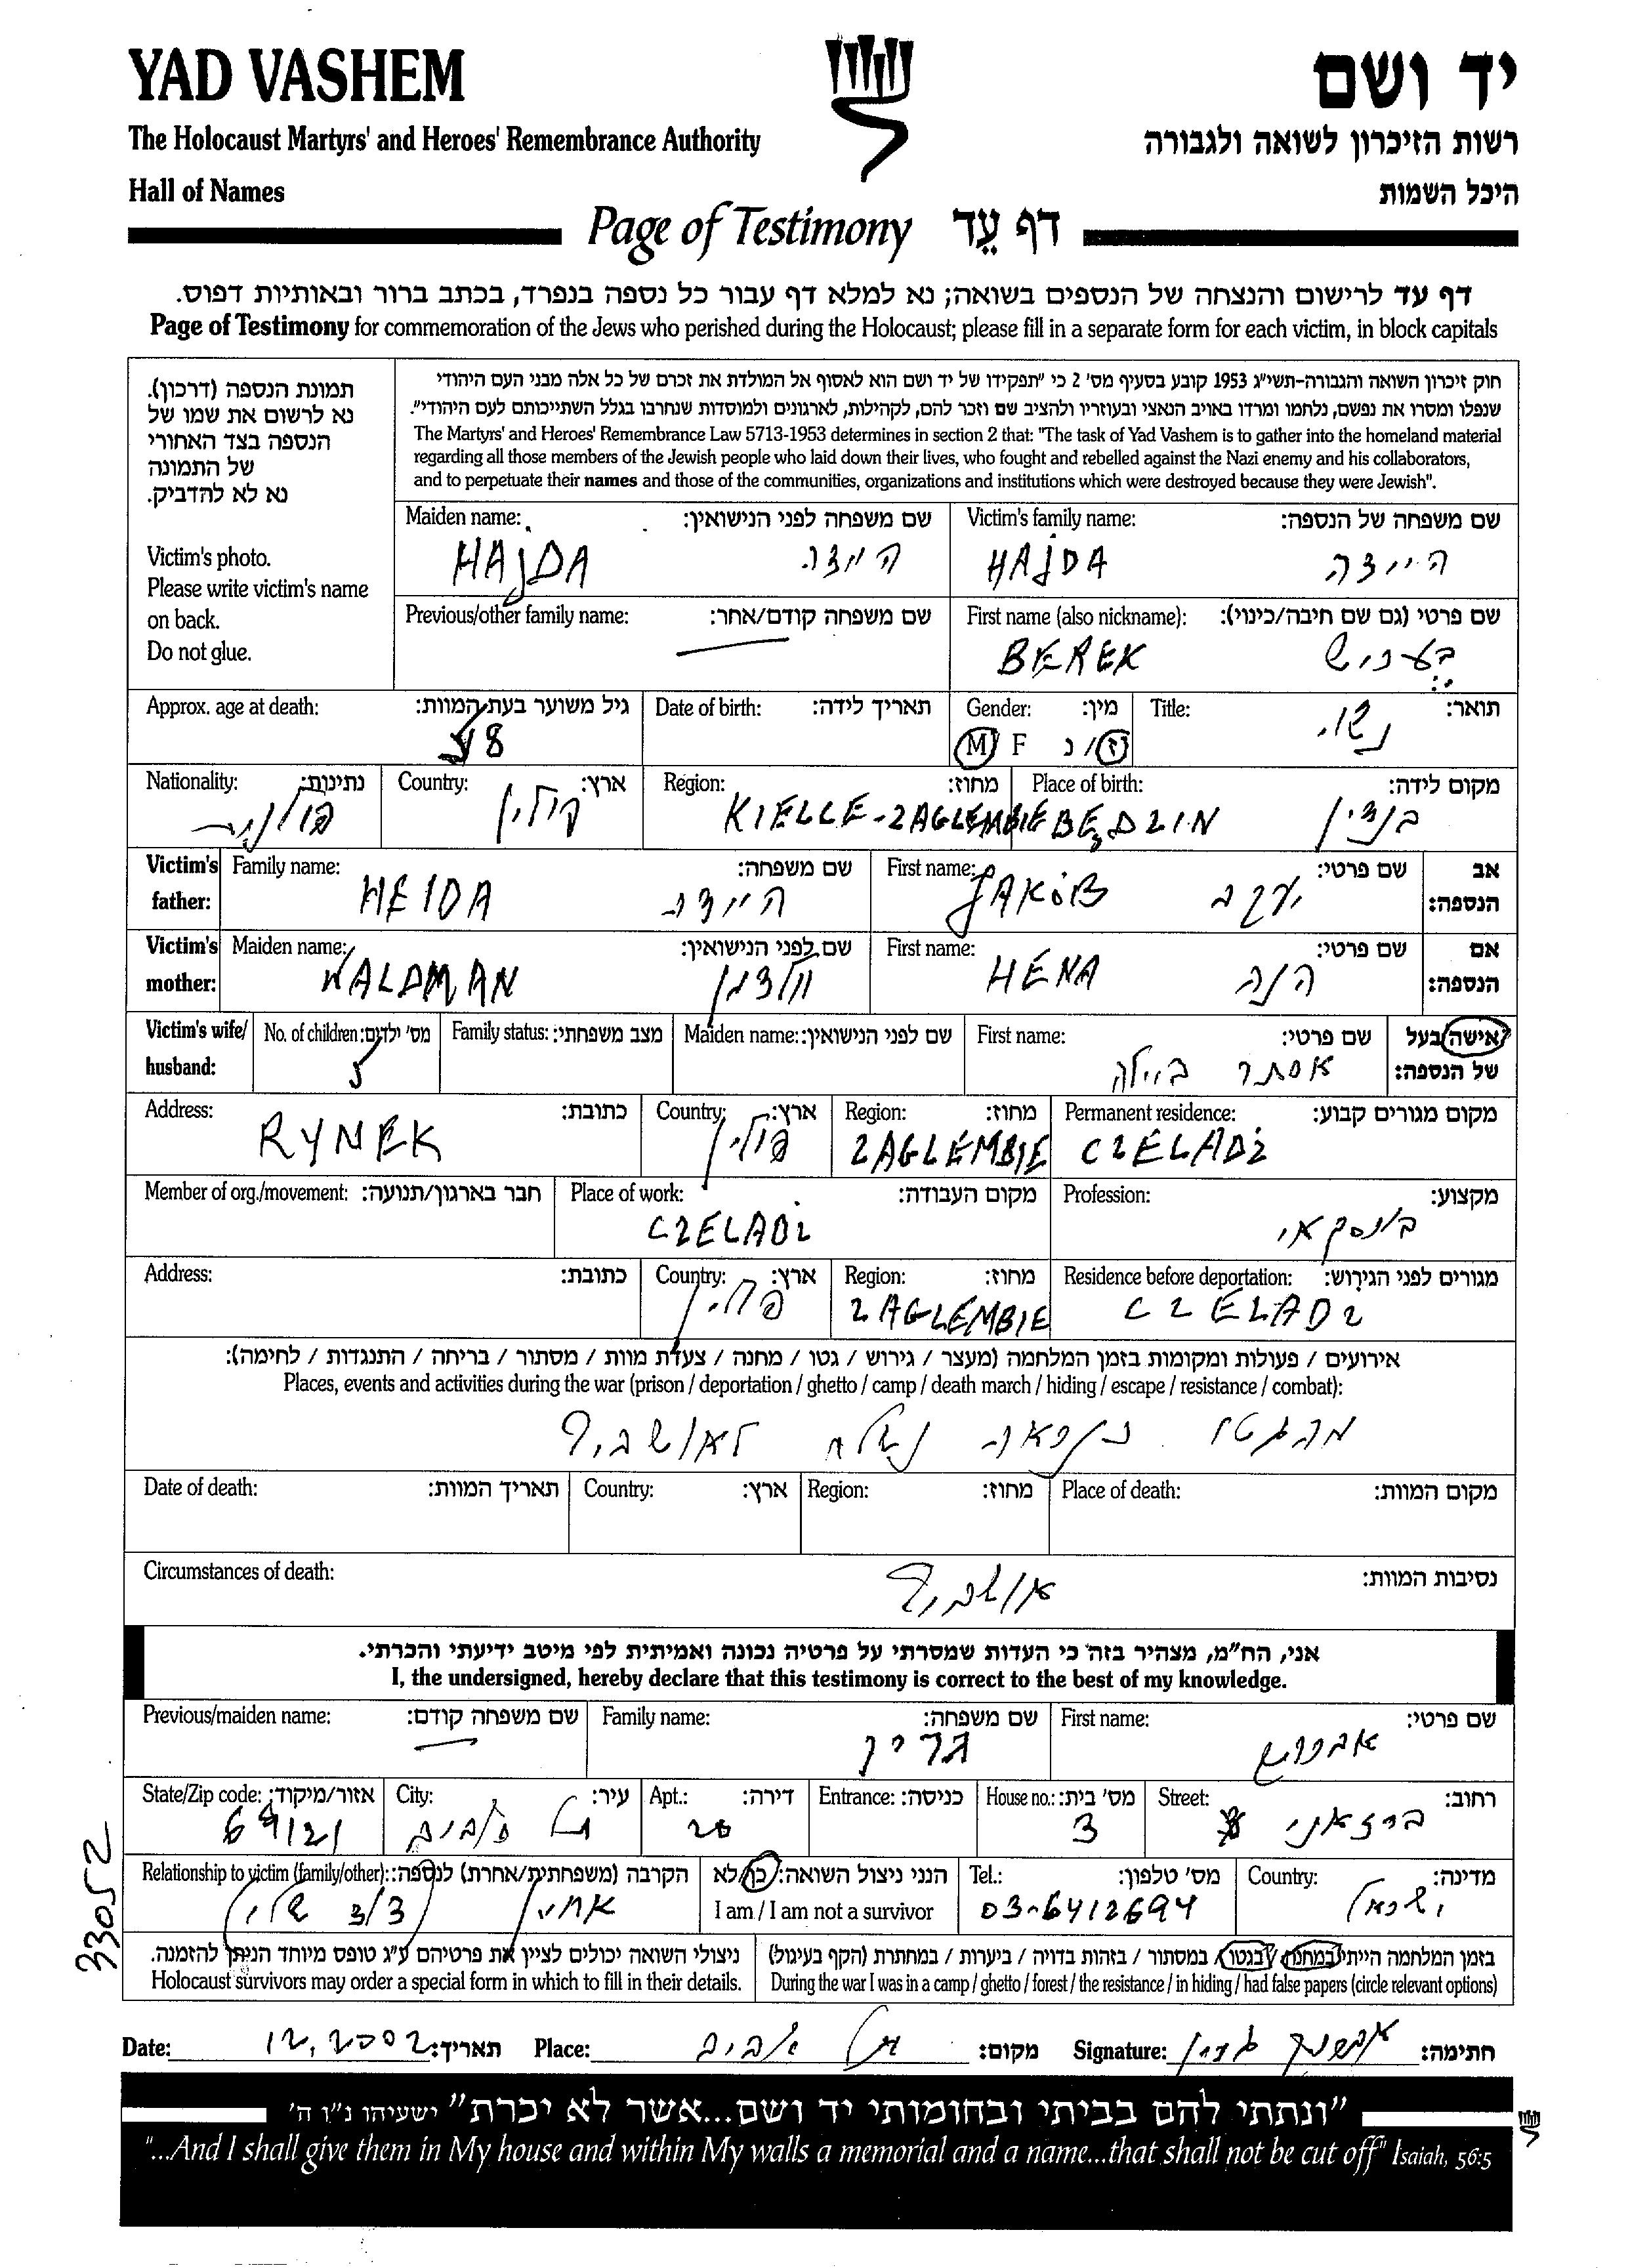 YAD VASHEM
יד ושם
The Holocaust Martyrs' and Heroes' Remembrance Authority
רשות הזיכרון לשואה ולגבורה
Hall of Names
היכל השמות
Page of Testimony דף עֵד
דף עד לרישום והנצחה של הנספים בשואה; נא למלא דף עבור כל נספה בנפרד, בכתב ברור ובאותיות דפוס.
Page of Testimony for commemoration of the Jews who perished during the Holocaust; please fill in a separate form for each victim, in block capitals
תמונת הנספה (דרכון).
נא לרשום את שמו של
הנספה בצד האחורי
של התמונה
נא לא להדביק.
Victim's photo.
Please write victim's name
on back.
Do not glue.
חוק זיכרון השואה והגבורה-תשי"ג 1953 קובע בסעיף מס' 2 כי "תפקידו של יד ושם הוא לאסוף אל המולדת את זכרם של כל אלה מבני העם היהודי
שנפלו ומסרו את נפשם, נלחמו ומרדו באויב הנאצי ובעוזריו ולהציב שם וזכר להם, לקהילות, לארגונים ולמוסדות שנחרבו בגלל השתייכותם לעם היהודי".
The Martyrs' and Heroes' Remembrance Law 5713-1953 determines in section 2 that: "The task of Yad Vashem is to gather into the homeland material
regarding all those members of the Jewish people who laid down their lives, who fought and rebelled against the Nazi enemy and his collaborators,
and to perpetuate their names and those of the communities, organizations and institutions which were destroyed because they were Jewish".
Maiden name: שם משפחה לפני הנישואין: Victim's family name: שם משפחה של הנספה:
HAJDA היידה HAJDA היידה
Previous/other family name: שם משפחה קודם/אחר: First name (also nickname): שם פרטי (גם שם חיבה/כינוי):
BEREK
Approx. age at death: גיל משוער בעת המוות: Date of birth: תאריך לידה: Gender: מין: Title: תואר:
48 M F ז/נ נשוי
Nationality: נתינות: Country: ארץ: Region: מחוז: Place of birth: מקום לידה:
פולנית פולין KIELLE-ZAGLEMBIE BEDZIN בנדין
Victim's father: Family name: שם משפחה: First name: שם פרטי: אב הנספה:
HEIDA היידה JAKÓB יעקב
Victim's mother: Maiden name: שם לפני הנישואין: First name: שם פרטי: אם הנספה:
WALDMAN ולדמן HENA הנה
Victim's wife/ husband: No. of children: מס' ילדים: Family status: מצב משפחתי: Maiden name: שם לפני הנישואין: First name: שם פרטי: אישה/בעל של הנספה:
5 אסתר ביילה
Address: כתובת: Country: ארץ: Region: מחוז: Permanent residence: מקום מגורים קבוע:
RYNEK פולין ZAGLEMBIE CZELADŻ
Member of org./movement: חבר בארגון/תנועה: Place of work: מקום העבודה: Profession: מקצוע:
CZELADŻ
Address: כתובת: Country: ארץ: Region: מחוז: Residence before deportation: מגורים לפני הגירוש:
פולין ZAGLEMBIE CZELADZ
אירועים / פעולות ומקומות בזמן המלחמה (מעצר / גירוש / גטו / מחנה / צעדת מוות / מסתור / בריחה / התנגדות / לחימה):
Places, events and activities during the war (prison / deportation / ghetto / camp / death march / hiding / escape / resistance / combat):
מהגטו נשלח לאושביץ
Date of death: תאריך המוות: Country: ארץ: Region: מחוז: Place of death: מקום המוות:
Circumstances of death: נסיבות המוות:
אושביץ
אני, הח"מ, מצהיר בזה כי העדות שמסרתי על פרטיה נכונה ואמיתית לפי מיטב ידיעתי והכרתי.
I, the undersigned, hereby declare that this testimony is correct to the best of my knowledge.
Previous/maiden name: שם משפחה קודם: Family name: שם משפחה: First name: שם פרטי:
גרין
State/Zip code: אזור/מיקוד: City: עיר: Apt.: דירה: Entrance: כניסה: House no.: מס' בית: Street: רחוב:
69121 תל אביב 20 3 ברזאני
Relationship to victim (family/other): הקרבה (משפחתית/אחרת) לנספה: הנני ניצול השואה: כן/לא Tel.: מס' טלפון: Country: מדינה:
I am / I am not a survivor 03-6412694 ישראל
ניצולי השואה יכולים לציין את פרטיהם ע"ג טופס מיוחד הניתן להזמנה. בזמן המלחמה הייתי במחנה/בגטו/ במסתור / בזהות בדויה / ביערות / במחתרת (הקף בעיגול)
Holocaust survivors may order a special form in which to fill in their details. During the war I was in a camp / ghetto / forest / the resistance / in hiding / had false papers (circle relevant options)
33052
Date: 12.2002 תאריך: Place: תל אביב מקום: Signature: גרין חתימה:
"ונתתי להם בביתי ובחומותי יד ושם...אשר לא יכרת" ישעיהו נ"ו ה'
"...And I shall give them in My house and within My walls a memorial and a name...that shall not be cut off" Isaiah, 56:5